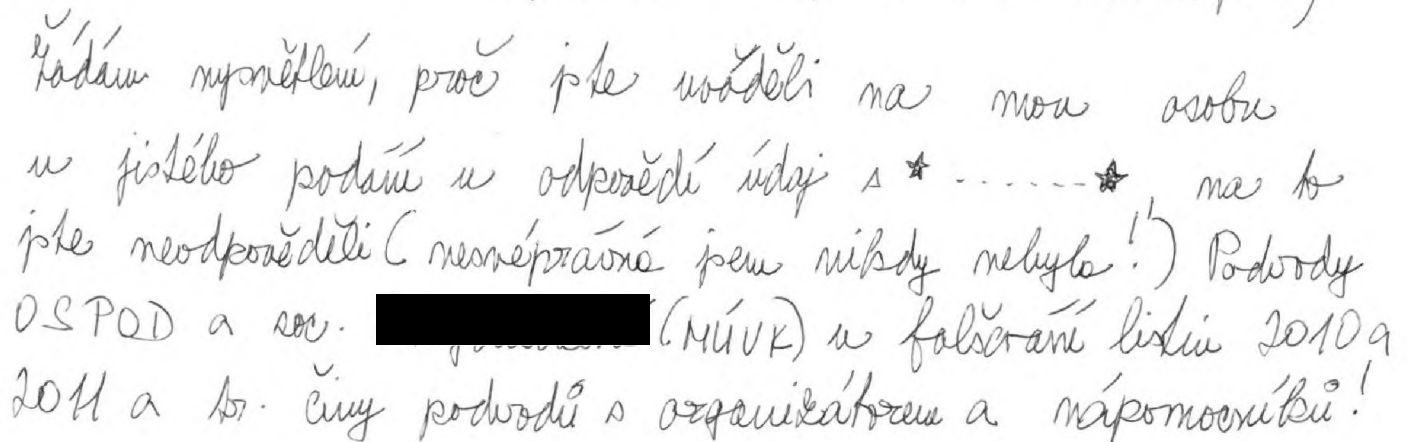 Žádám vysvětlení, proč jste uváděli na mou osobu
u jistého podání u odpovědí údaj s ★ ------★ na to
jste neodpověděli (nesvéprávná jsem nikdy nebyla!!) Podvody
OSPOD a soc. (MÚVK) u falšování listin 2010 a
2011 a tr. činy podvodů s organizátorem a nápomocníků!